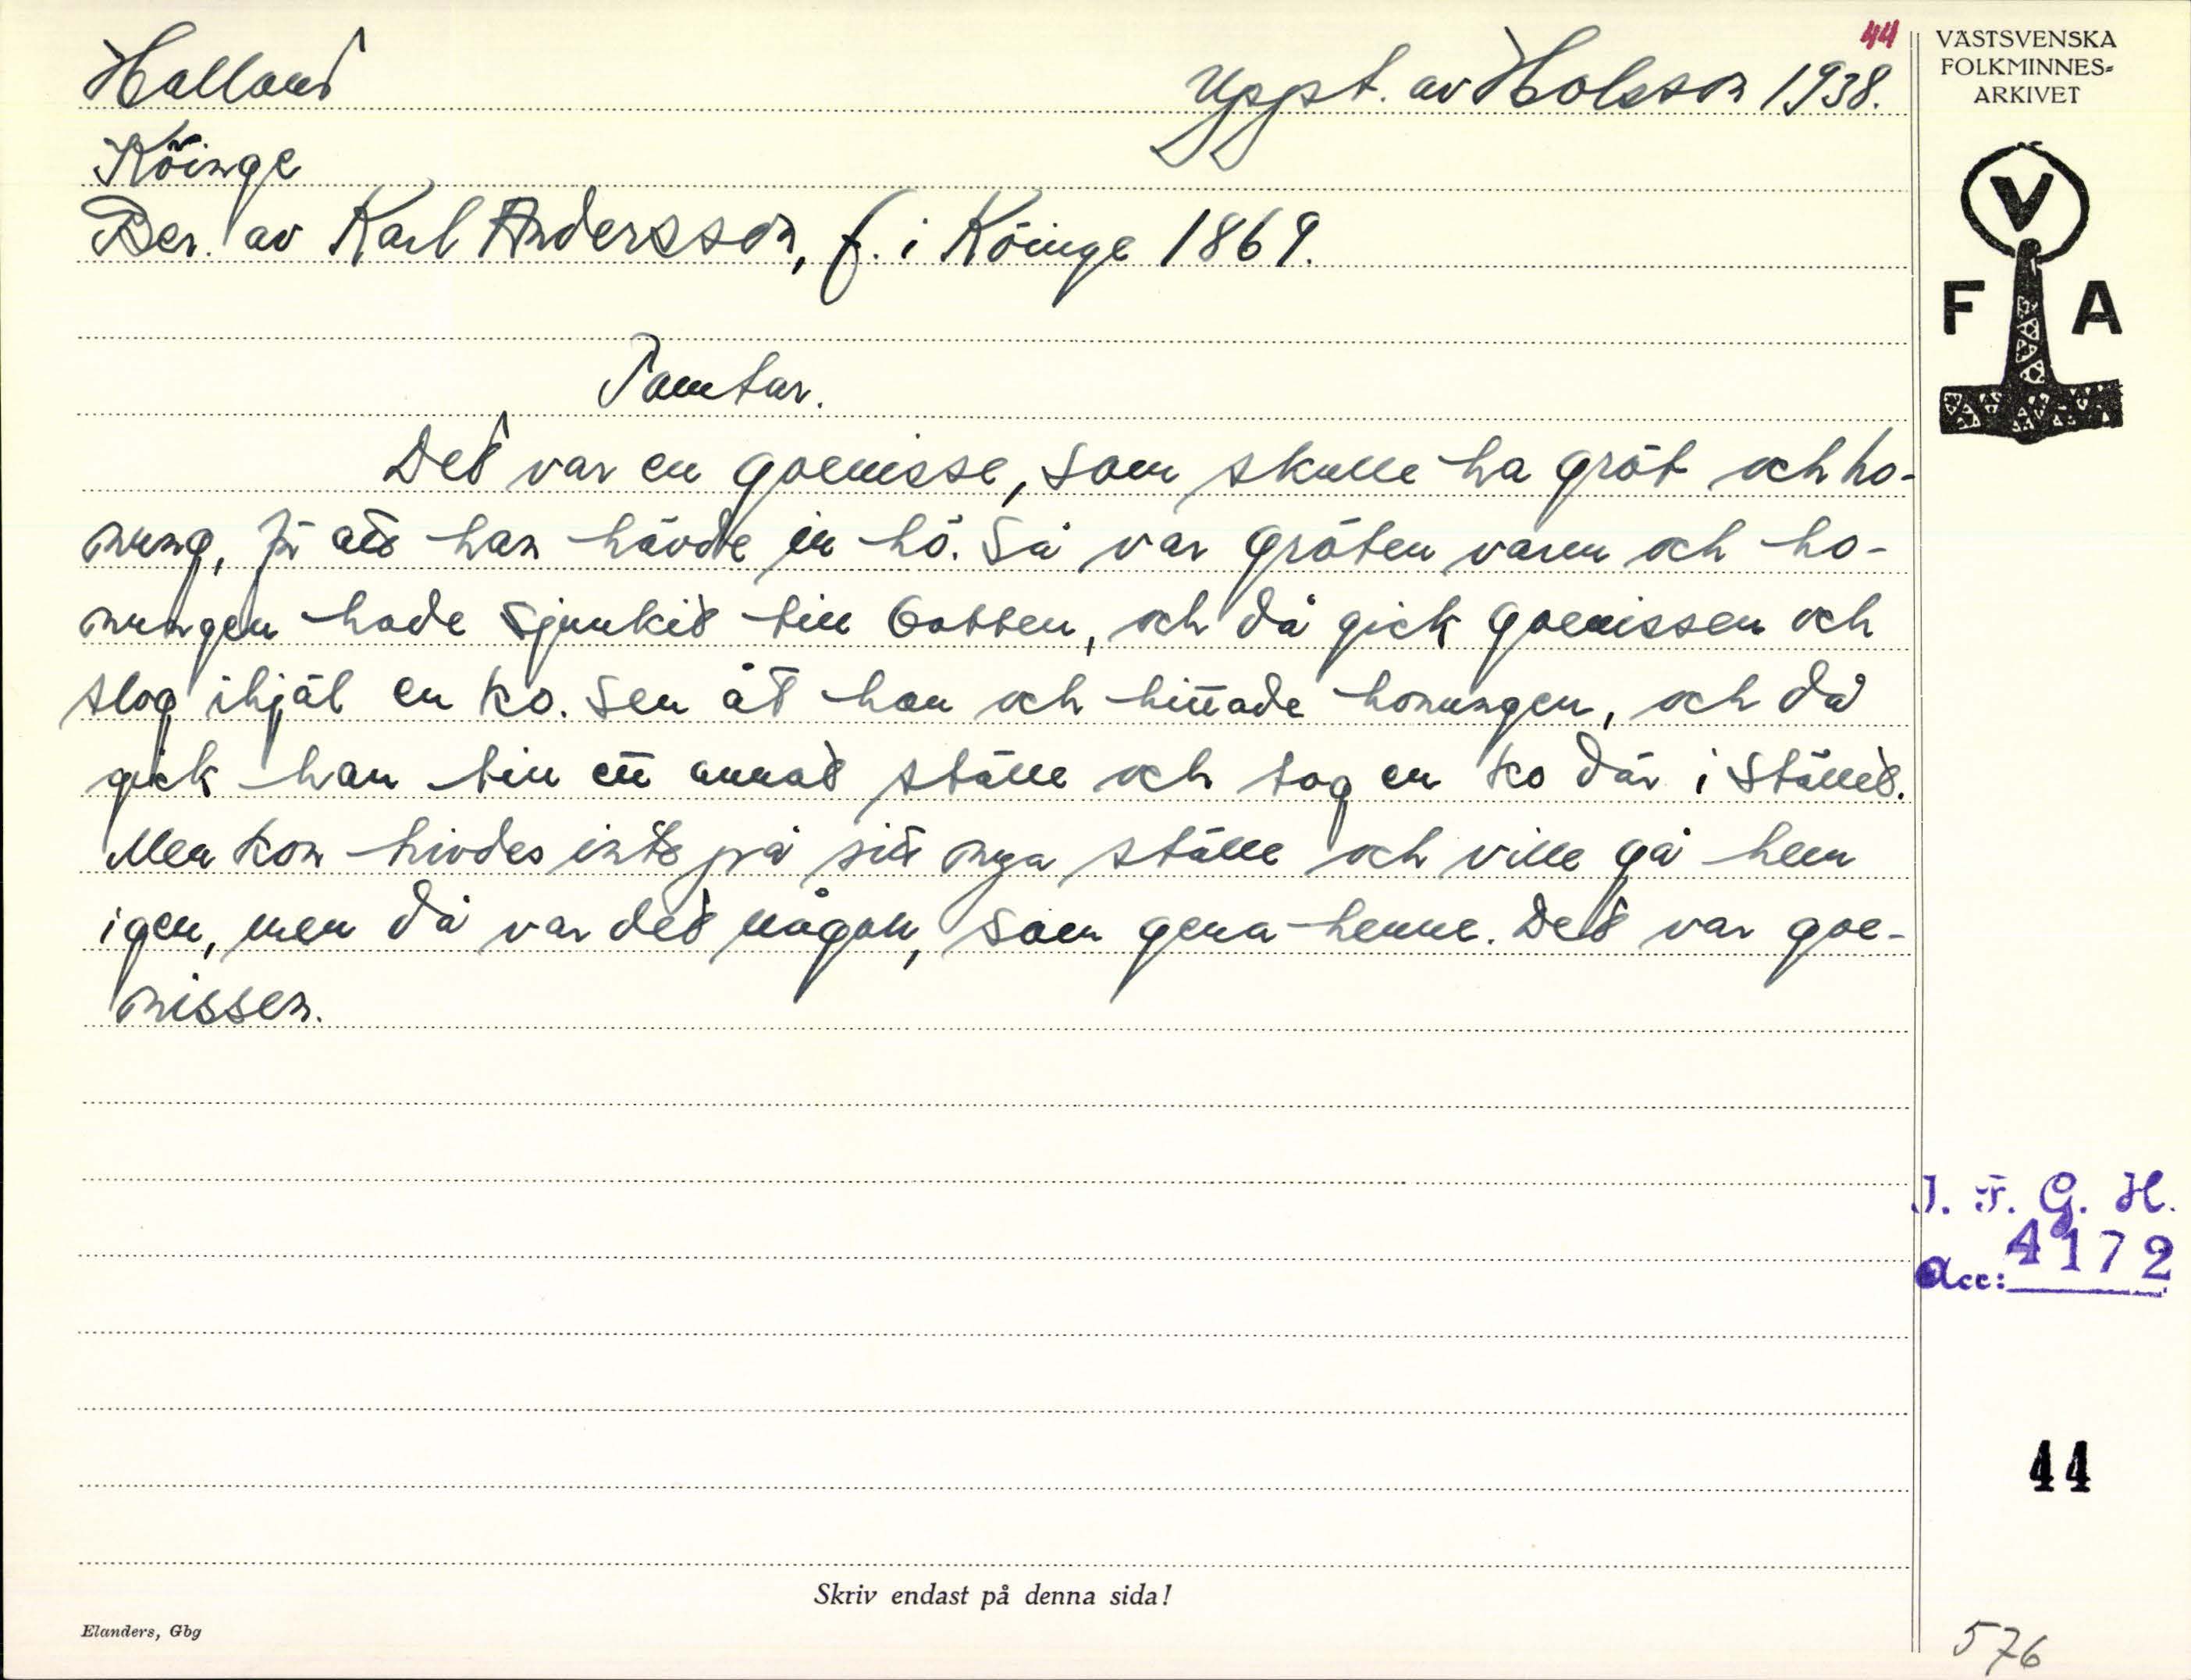 44
Halland
Uppt. av Holsson 1938.
Köinge
Ber. av Karl Andersson, f. i Köinge 1869.
Tomtar.
Det var en goenisse, som skulle ha gröt och ho-
nung, för att han hävde in hö. Så var gröten varm och ho-
nungen hade sjunkit till botten, och då gick goenissen och
slog ihjäl en ko. Sen åt han och hittade honungen, och då
gick han till ett annat ställe och tog en ko där i stället.
Men kon hivdes inte på sitt nya ställe och ville gå hem
igen, men då var det någon, som gena henne. Det var goe-
nissen.
Skriv endast på denna sida!
Elanders, Gbg
VÄSTSVENSKA
FOLKMINNES-
ARKIVET
V
F A
I. F. G. H.
Acc: 4172
44
576